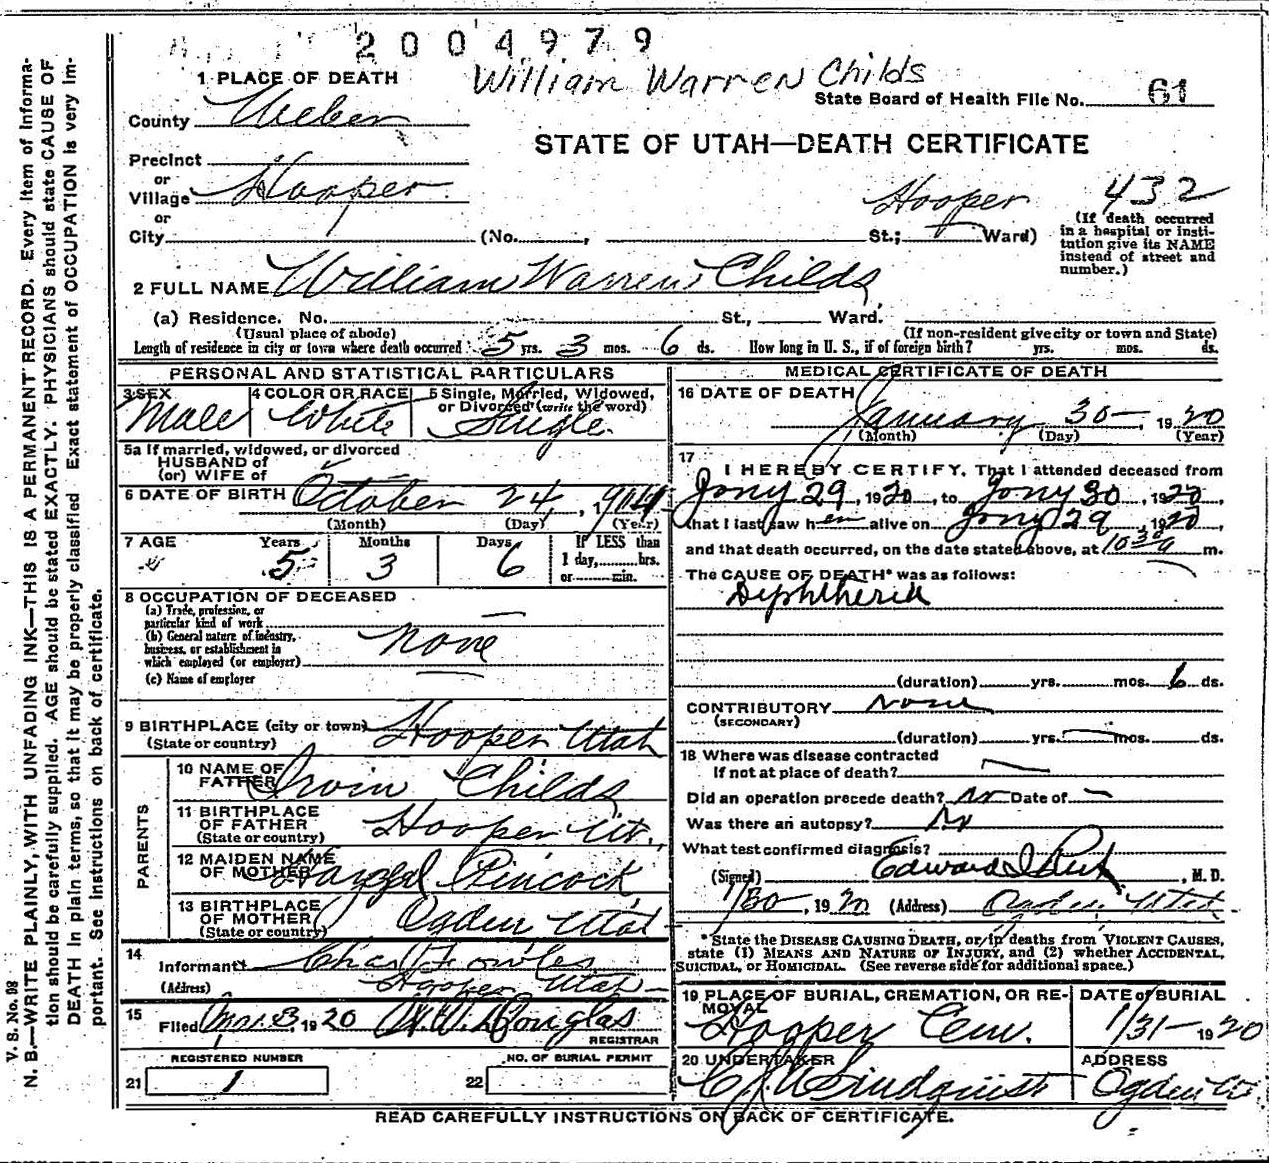 2004979
William Warren Childs
1 PLACE OF DEATH
State Board of Health File No. 61
County Weber
STATE OF UTAH—DEATH CERTIFICATE
Precinct
or
Village Hooper
or
City (No. , St.; Ward)
Hooper 432
(If death occurred
in a hospital or insti-
tution give its NAME
instead of street and
number.)
2 FULL NAME William Warren Childs
(a) Residence. No. St., Ward.
(Usual place of abode) (If non-resident give city or town and State)
Length of residence in city or town where death occurred 5 yrs. 3 mos. 6 ds. How long in U. S., if of foreign birth? yrs. mos. ds.
PERSONAL AND STATISTICAL PARTICULARS
3 SEX 4 COLOR OR RACE 5 Single, Married, Widowed,
or Divorced (write the word)
Male White Single
5a If married, widowed, or divorced
HUSBAND of
(or) WIFE of
6 DATE OF BIRTH October 24, 19
(Month) (Day) (Year)
7 AGE Years Months Days If LESS than
1 day, hrs.
or min.
5 3 6
8 OCCUPATION OF DECEASED
(a) Trade, profession, or
particular kind of work
(b) General nature of industry,
business, or establishment in
which employed (or employer)
None
(c) Name of employer
9 BIRTHPLACE (city or town) Hooper Utah
(State or country)
PARENTS
10 NAME OF
FATHER Irvin Childs
11 BIRTHPLACE
OF FATHER Hooper Ut.
(State or country)
12 MAIDEN NAME
OF MOTHER Hazel Pincock
13 BIRTHPLACE
OF MOTHER Ogden Utah
(State or country)
14
Informant Chas Fowles
(Address) Hooper Utah
15
Filed Mar. 3 1920 W.W. Douglas
REGISTRAR
REGISTERED NUMBER NO. OF BURIAL PERMIT
21 1 22
MEDICAL CERTIFICATE OF DEATH
16 DATE OF DEATH
January 30 1920
(Month) (Day) (Year)
17
I HEREBY CERTIFY, That I attended deceased from
Jany 29, 1920, to Jany 30, 1920,
that I last saw h im alive on Jany 29, 1920,
and that death occurred, on the date stated above, at 10 30 a m.
The CAUSE OF DEATH* was as follows:
Diphtheria
(duration) yrs. mos. 6 ds.
CONTRIBUTORY None
(SECONDARY)
(duration) yrs. mos. ds.
18 Where was disease contracted
if not at place of death?
Did an operation precede death? No Date of —
Was there an autopsy? No
What test confirmed diagnosis?
(Signed) Edward I Rich, M. D.
1/30, 1920 (Address) Ogden, Utah
*State the DISEASE CAUSING DEATH, or in deaths from VIOLENT CAUSES,
state (1) MEANS AND NATURE OF INJURY, and (2) whether ACCIDENTAL,
SUICIDAL, or HOMICIDAL. (See reverse side for additional space.)
19 PLACE OF BURIAL, CREMATION, OR RE-
MOVAL DATE of BURIAL
Hooper Cem. 1/31 1920
20 UNDERTAKER ADDRESS
C J A Lindquist Ogden Ut.
READ CAREFULLY INSTRUCTIONS ON BACK OF CERTIFICATE.
V. S. No. 98
N. B.—WRITE PLAINLY, WITH UNFADING INK—THIS IS A PERMANENT RECORD. Every item of informa-
tion should be carefully supplied. AGE should be stated EXACTLY. PHYSICIANS should state CAUSE OF
DEATH in plain terms, so that it may be properly classified. Exact statement of OCCUPATION is very im-
portant. See instructions on back of certificate.